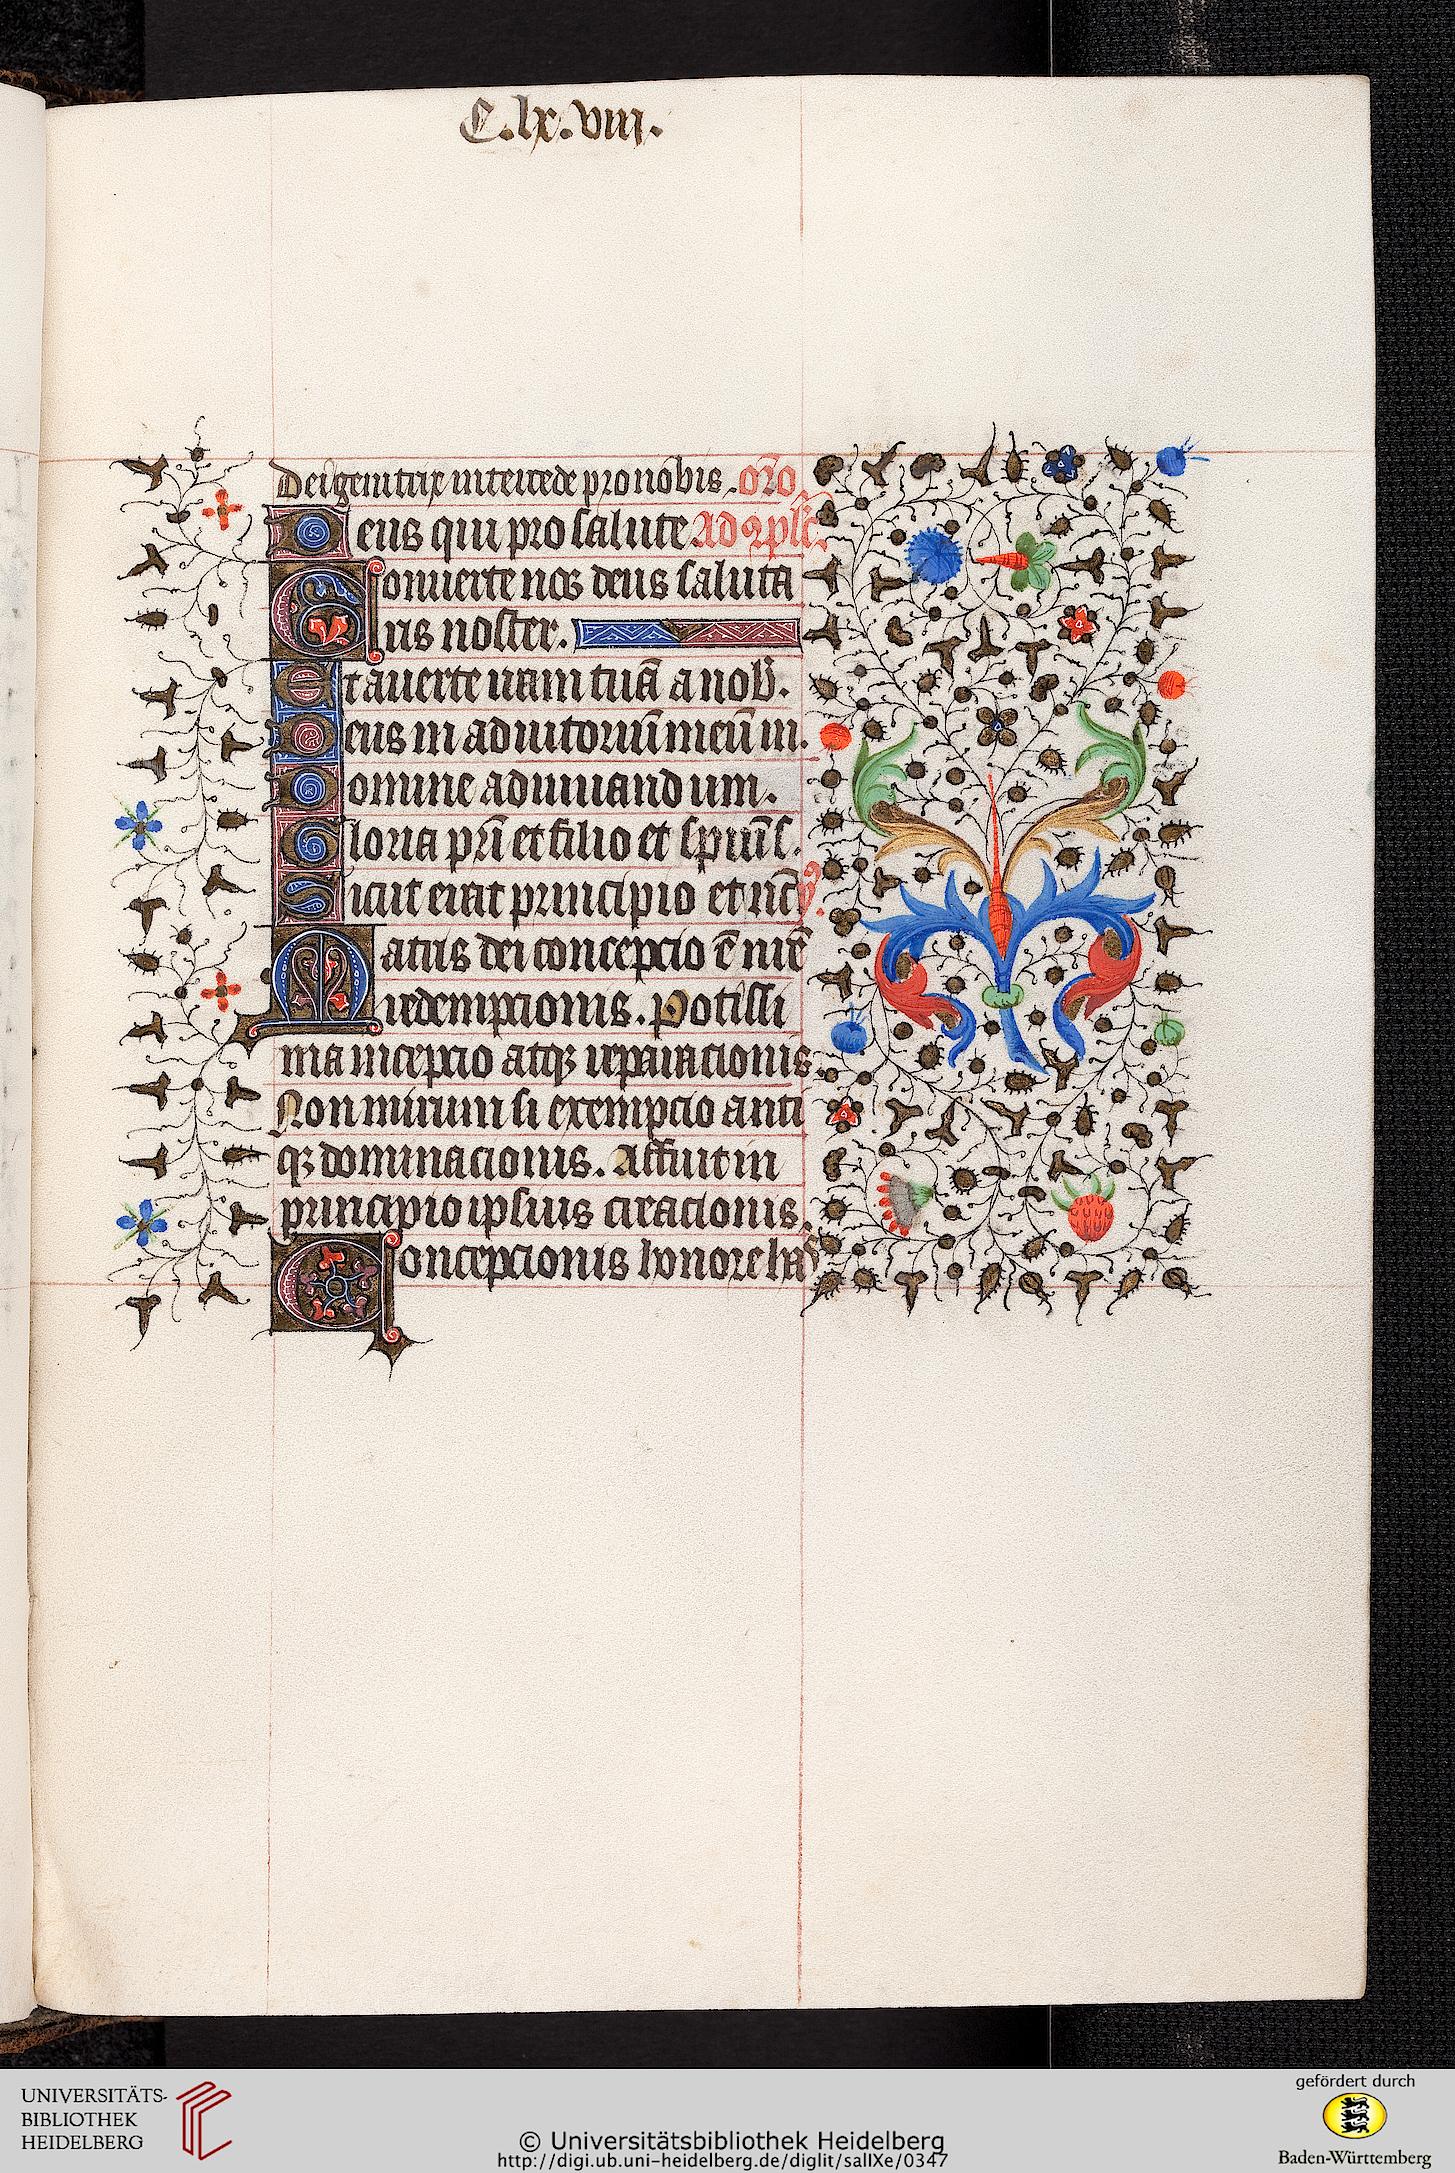 C.lx.viij.
Dei genitrix intercede pro nobis. oro
Deus qui pro salute Ad 9pl̃c.
Conuerte nos deus saluta
ris noster.
Et auerte iram tuā a nob̃.
Deus in adiutoriū meū in.
Domine adiuuandum.
Gloria pr̃i et filio et spiũ s.
Sicut erat principio et nc̃ y̾.
Matris dei concepcio ē nr̃e
redempcionis. Potissi
ma incepcio atqꝫ reparacionis.
Non mirum si exempcio anti
qꝫ dominacionis. Affuit in
principio ipsius creacionis.
Concepcionis honore
UNIVERSITÄTS-
BIBLIOTHEK
HEIDELBERG
© Universitätsbibliothek Heidelberg
http://digi.ub.uni-heidelberg.de/diglit/salIXe/0347
gefördert durch
Baden-Württemberg